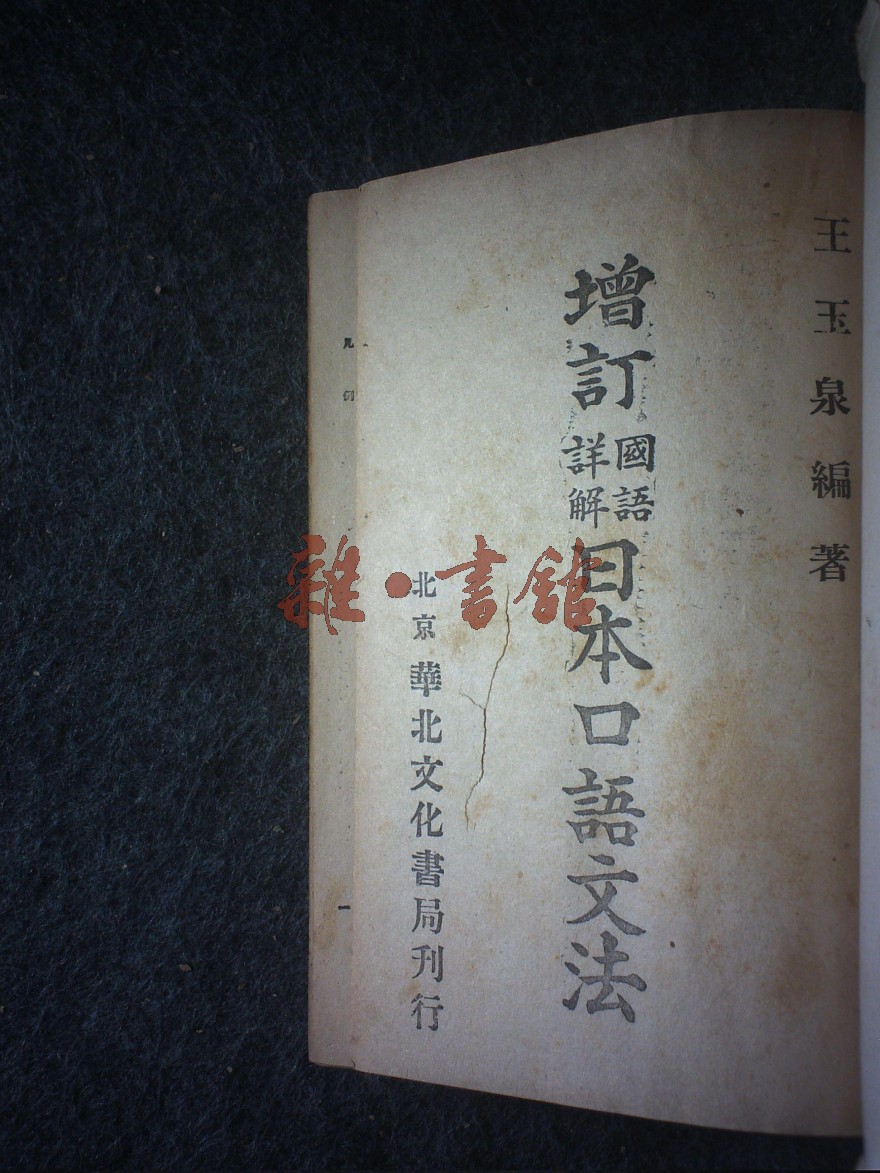 王玉泉編著
增訂
國語
詳解
日本口語文法
北京 華北文化書局刊行
凡例
一
雜·書館